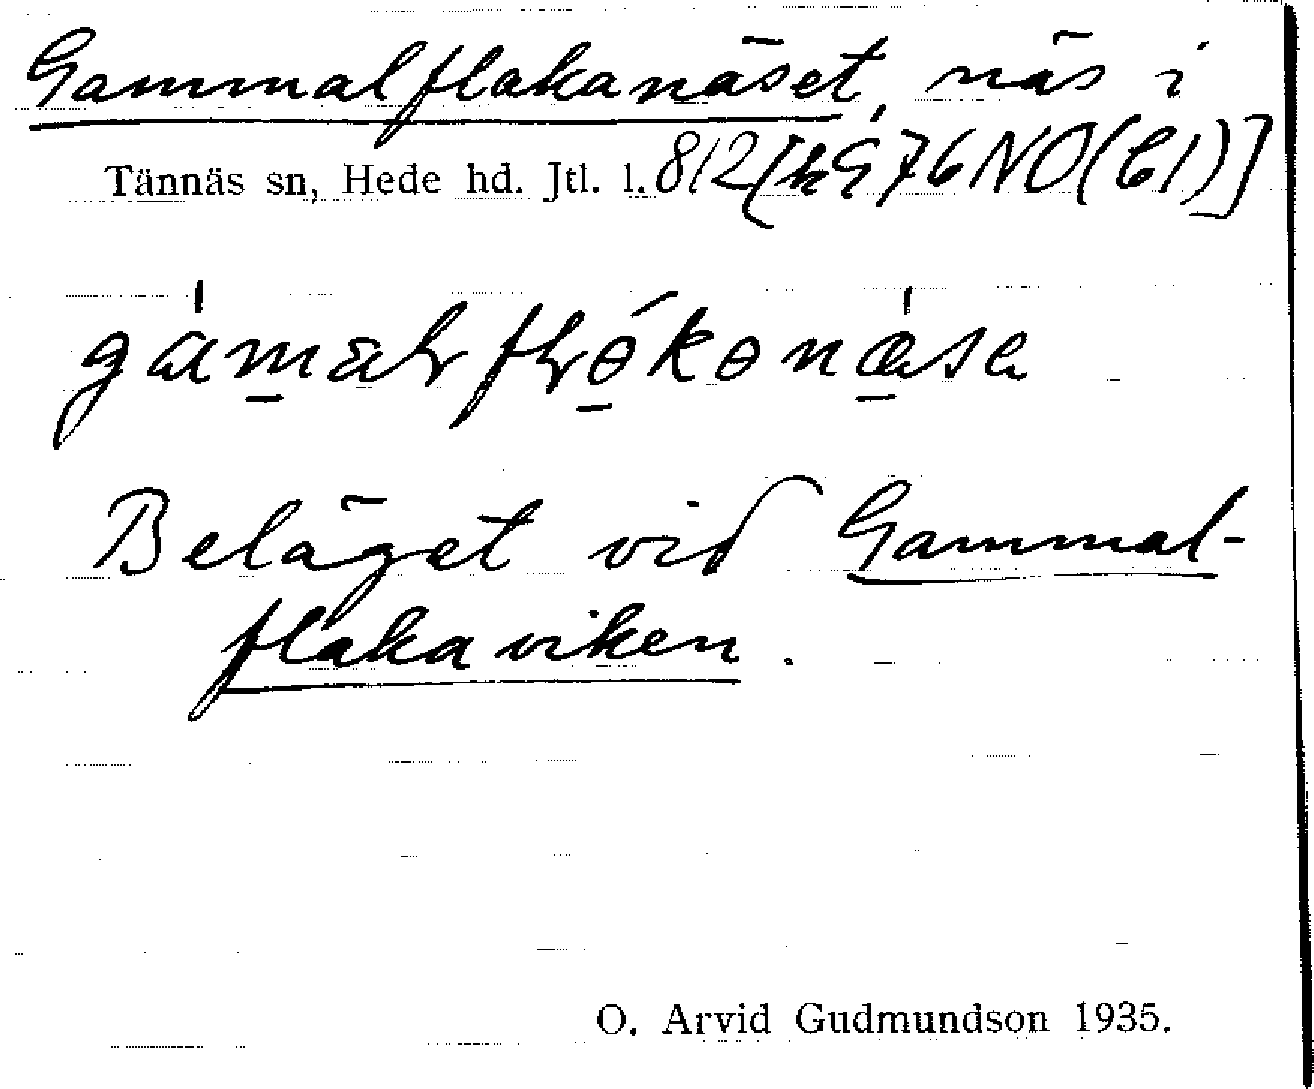 Gammalflakanäset, näs i
Tännäs sn, Hede hd. Jtl. l. 812 [k 976 NO (61)]
gamalflɵkɵnæsa
Beläget vid Gammal-
flakaviken.
O. Arvid Gudmundson 1935.